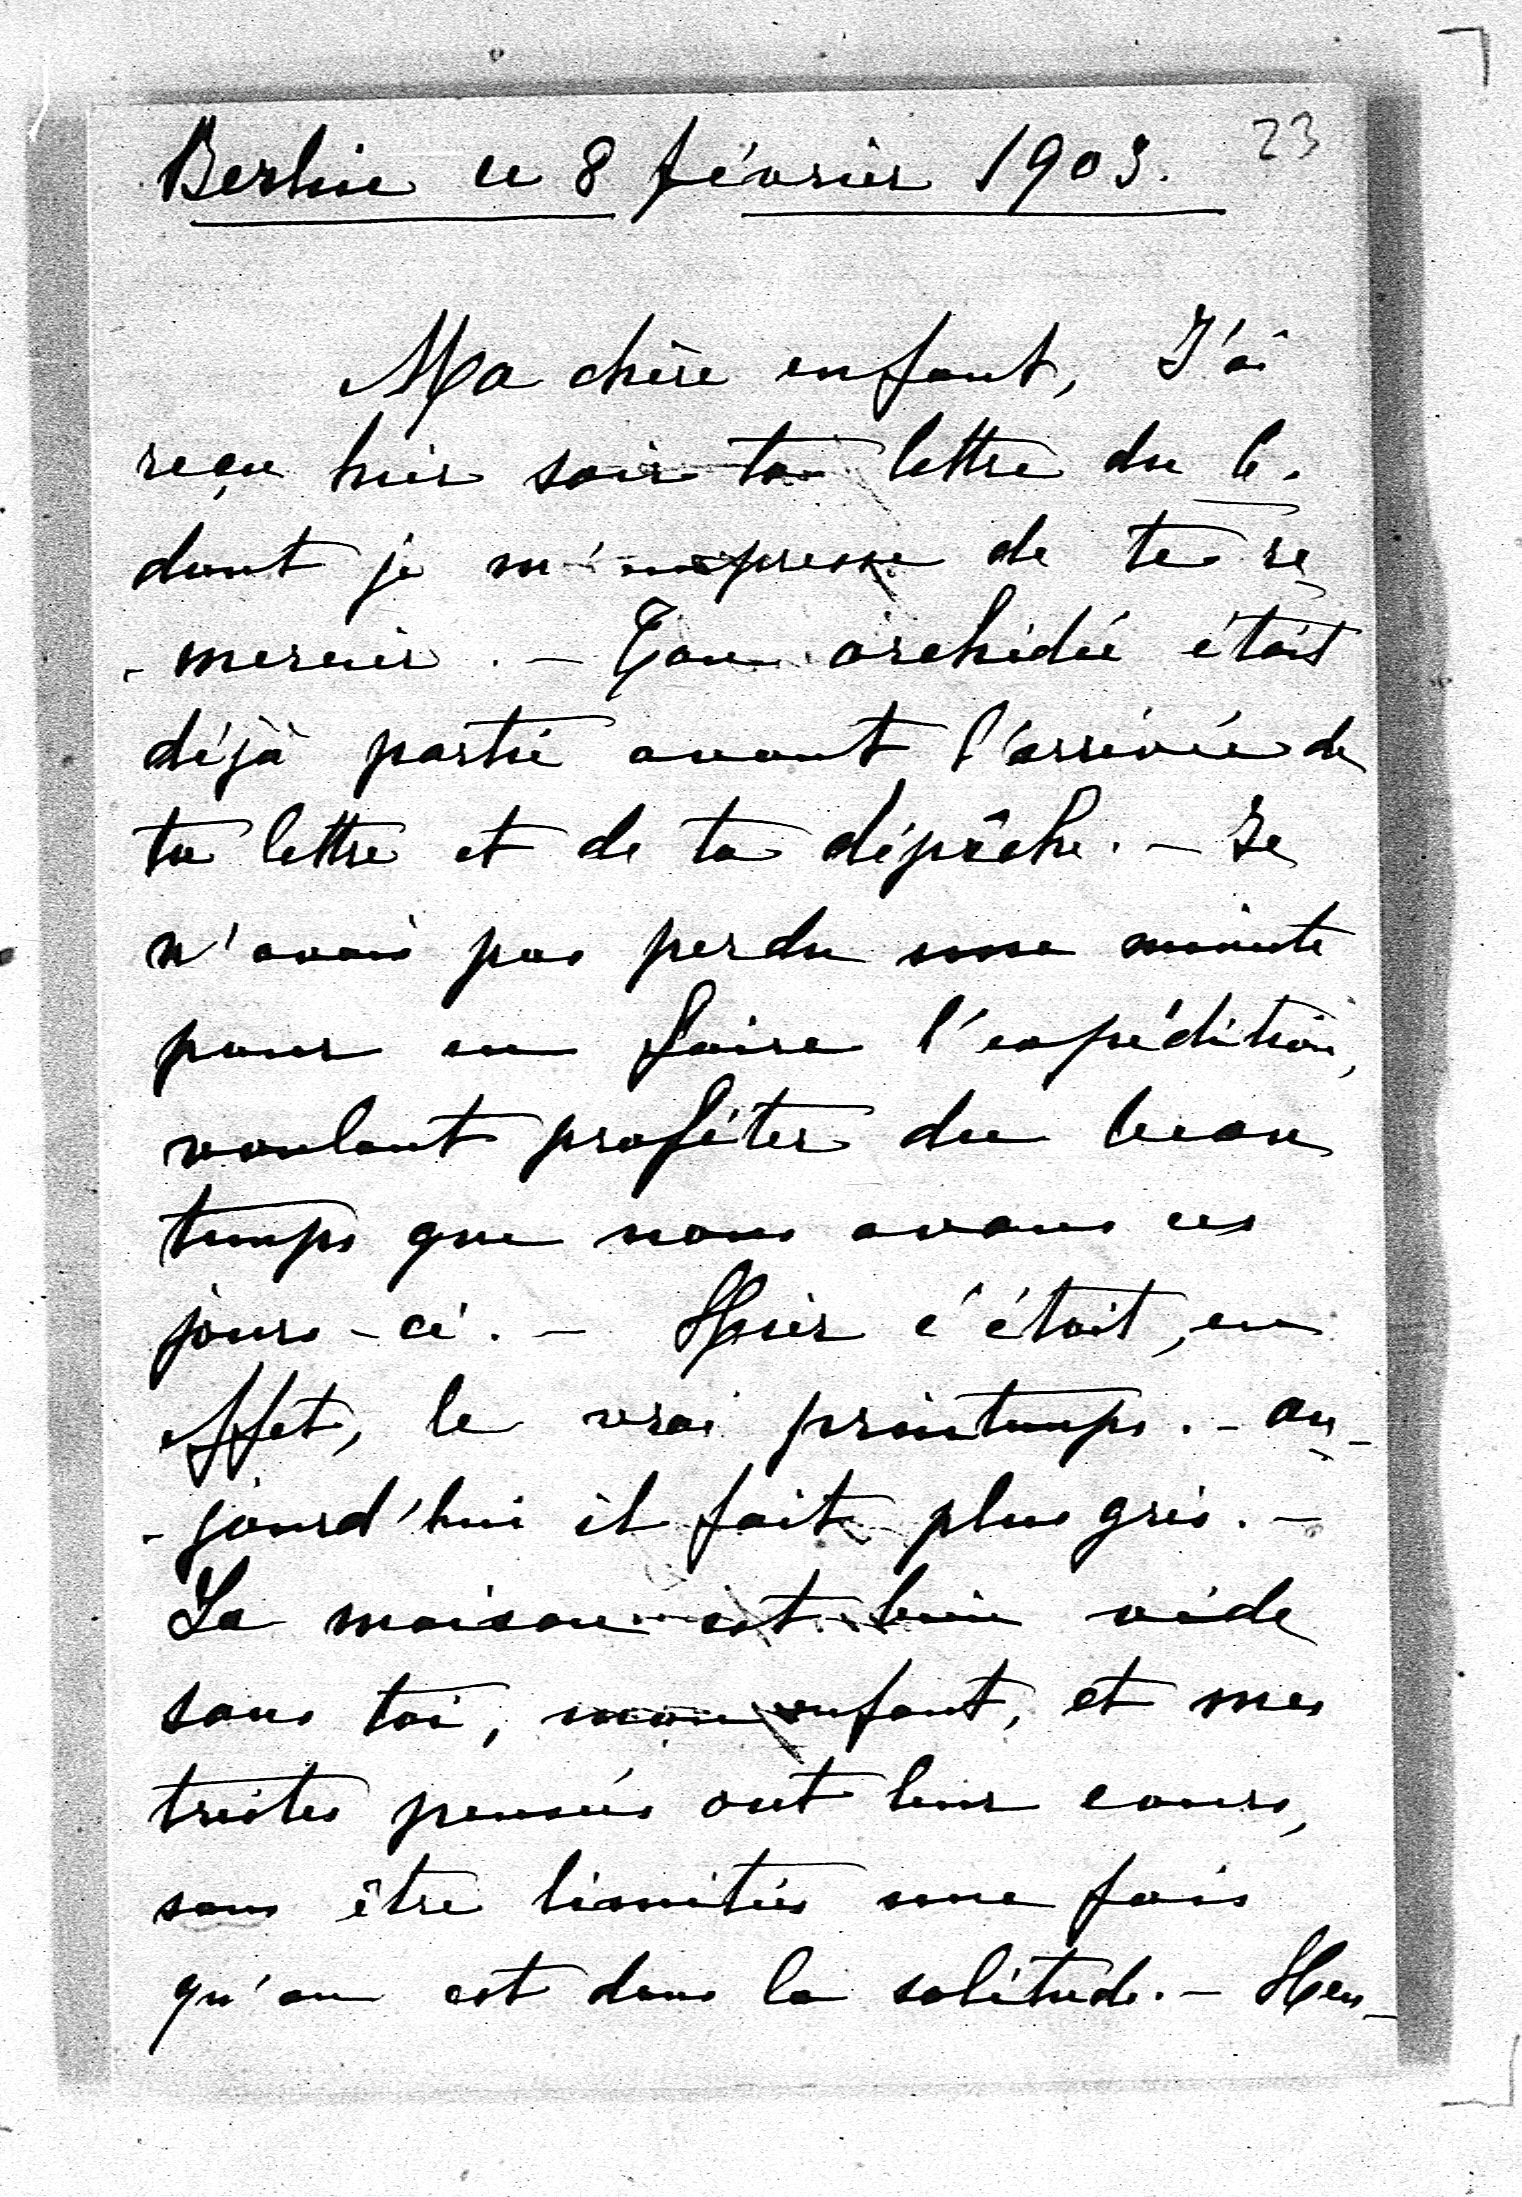 23
Berlin le 8 février 1903.
Ma chère enfant, J'ai
reçu hier soir ta lettre du 6.
dont je m'empresse de te re
-mercier. – Ton orchidée était
déjà partie avant l'arrivée de
ta lettre et de ta dépêche. – Je
n'avais pas perdu une minute
pour en faire l'expédition,
voulant profiter du beau
temps que nous avons ces
jours-ci. – Hier c'était, en
effet, le vrai printemps. – Au-
-jourd'hui il fait plus gris. –
La maison est bien vide
sans toi, mon enfant, et mes
tristes pensées ont leur cours,
sans être limitées une fois
qu'on est dans la solitude. – Heu-